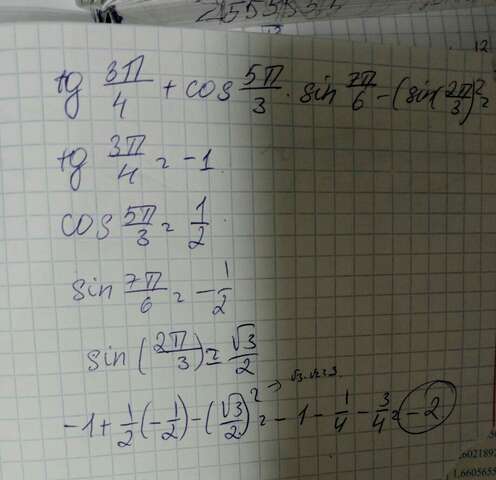 12
tg 3π/4 + cos 5π/3 · sin 7π/6 - (sin(2π/3))² =
tg 3π/4 = -1
cos 5π/3 = 1/2
sin 7π/6 = -1/2
sin (2π/3) = √3/2
-1 + 1/2 (-1/2) - (√3/2)² = -1 - 1/4 - 3/4 = -2
.6021892
1.6605655